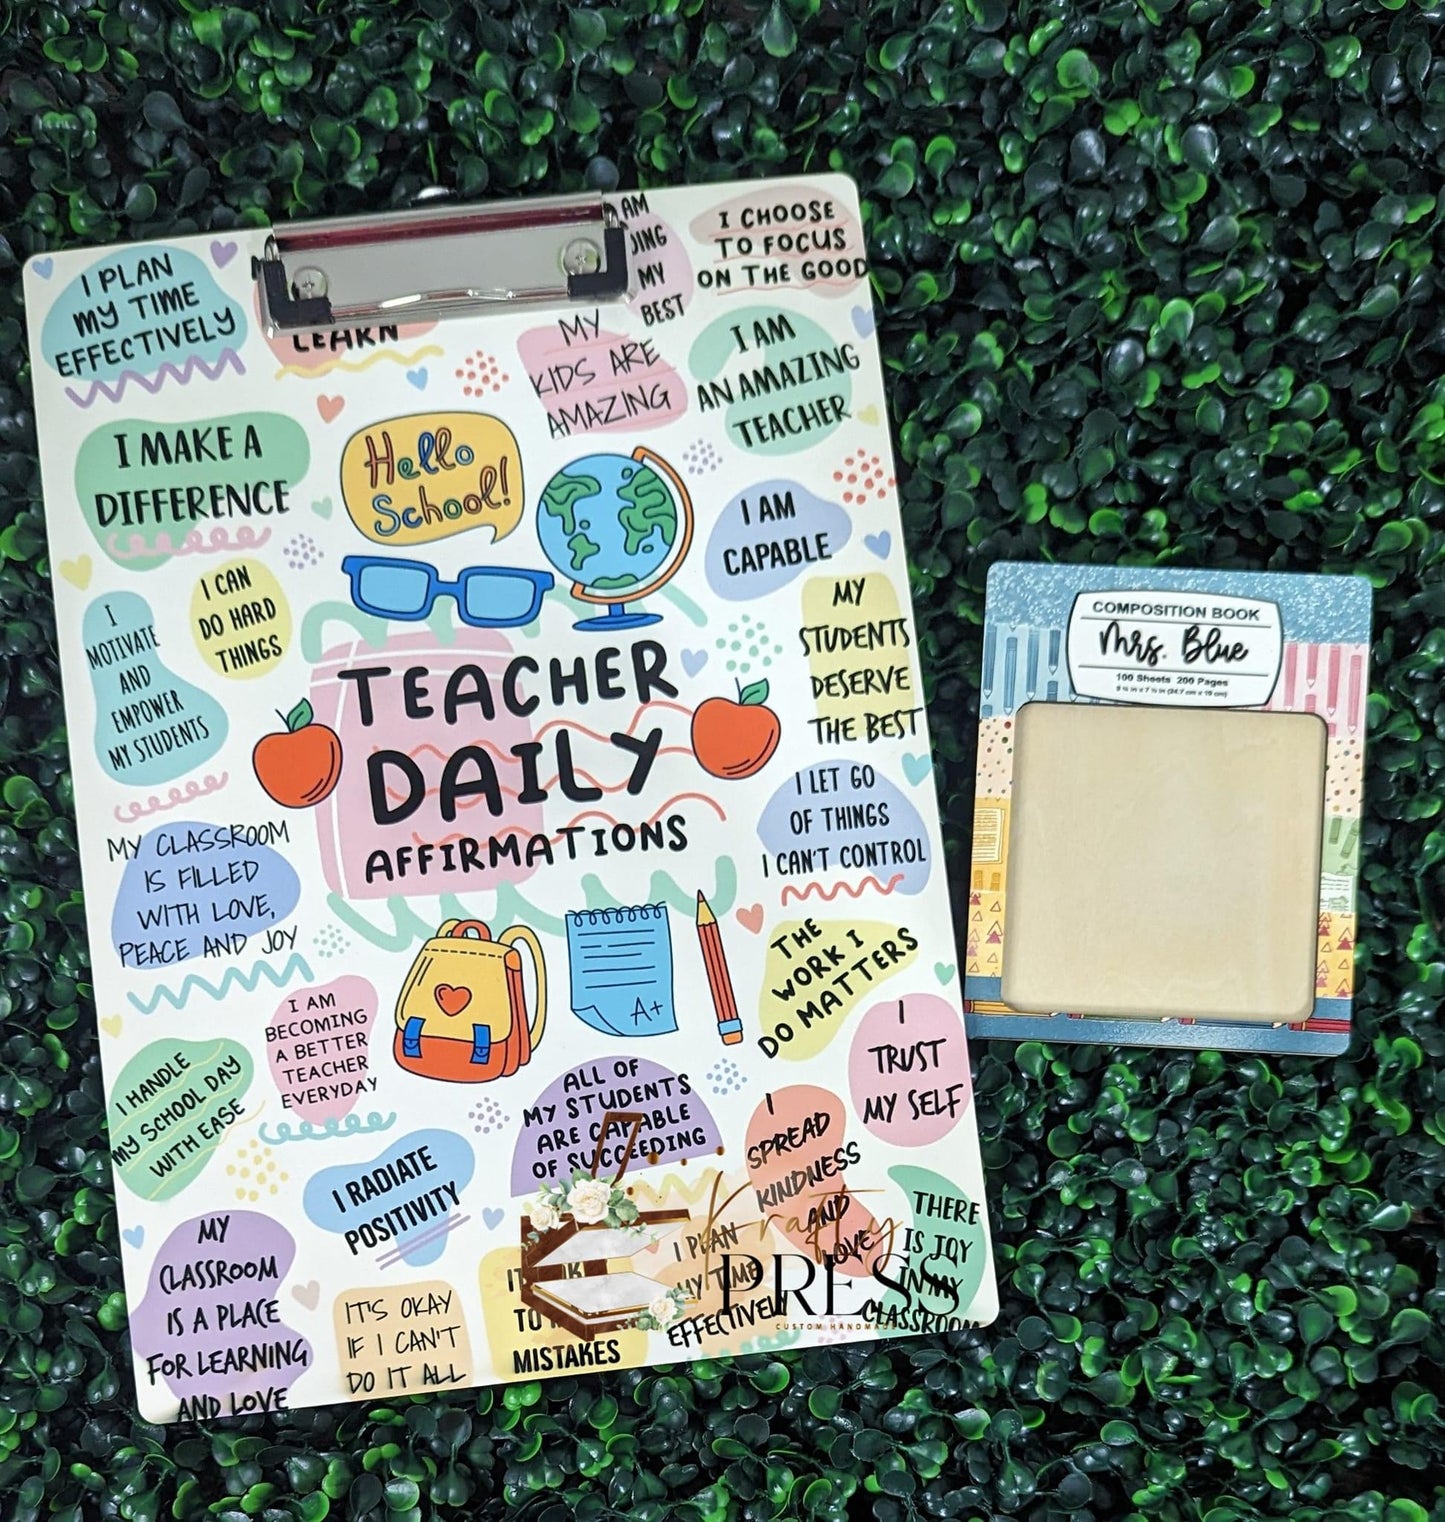 I PLAN
MY TIME
EFFECTIVELY
LEARN
AM
MY
BEST
I CHOOSE
TO FOCUS
ON THE GOOD
MY
KIDS ARE
AMAZING
I AM
AN AMAZING
TEACHER
I MAKE A
DIFFERENCE
Hello
School!
I AM
CAPABLE
I CAN
DO HARD
THINGS
I
MOTIVATE
AND
EMPOWER
MY STUDENTS
MY
STUDENTS
DESERVE
THE BEST
TEACHER
DAILY
AFFIRMATIONS
I LET GO
OF THINGS
I CAN'T CONTROL
MY CLASSROOM
IS FILLED
WITH LOVE,
PEACE AND JOY
A+
THE
WORK I
DO MATTERS
I AM
BECOMING
A BETTER
TEACHER
EVERYDAY
I HANDLE
MY SCHOOL DAY
WITH EASE
ALL OF
MY STUDENTS
ARE CAPABLE
OF SUCCEEDING
I
TRUST
MY SELF
I
SPREAD
KINDNESS
AND
LOVE
I RADIATE
POSITIVITY
THERE
IS JOY
IN MY
CLASSROOM
MY
CLASSROOM
IS A PLACE
FOR LEARNING
AND LOVE
IT'S OKAY
IF I CAN'T
DO IT ALL
MISTAKES
I PLAN
MY TIME
EFFECTIVELY
Krafty
PRESS
CUSTOM HANDMADE
COMPOSITION BOOK
Mrs. Blue
100 Sheets 200 Pages
9 ¾ in x 7 ½ in (24.7 cm x 19 cm)